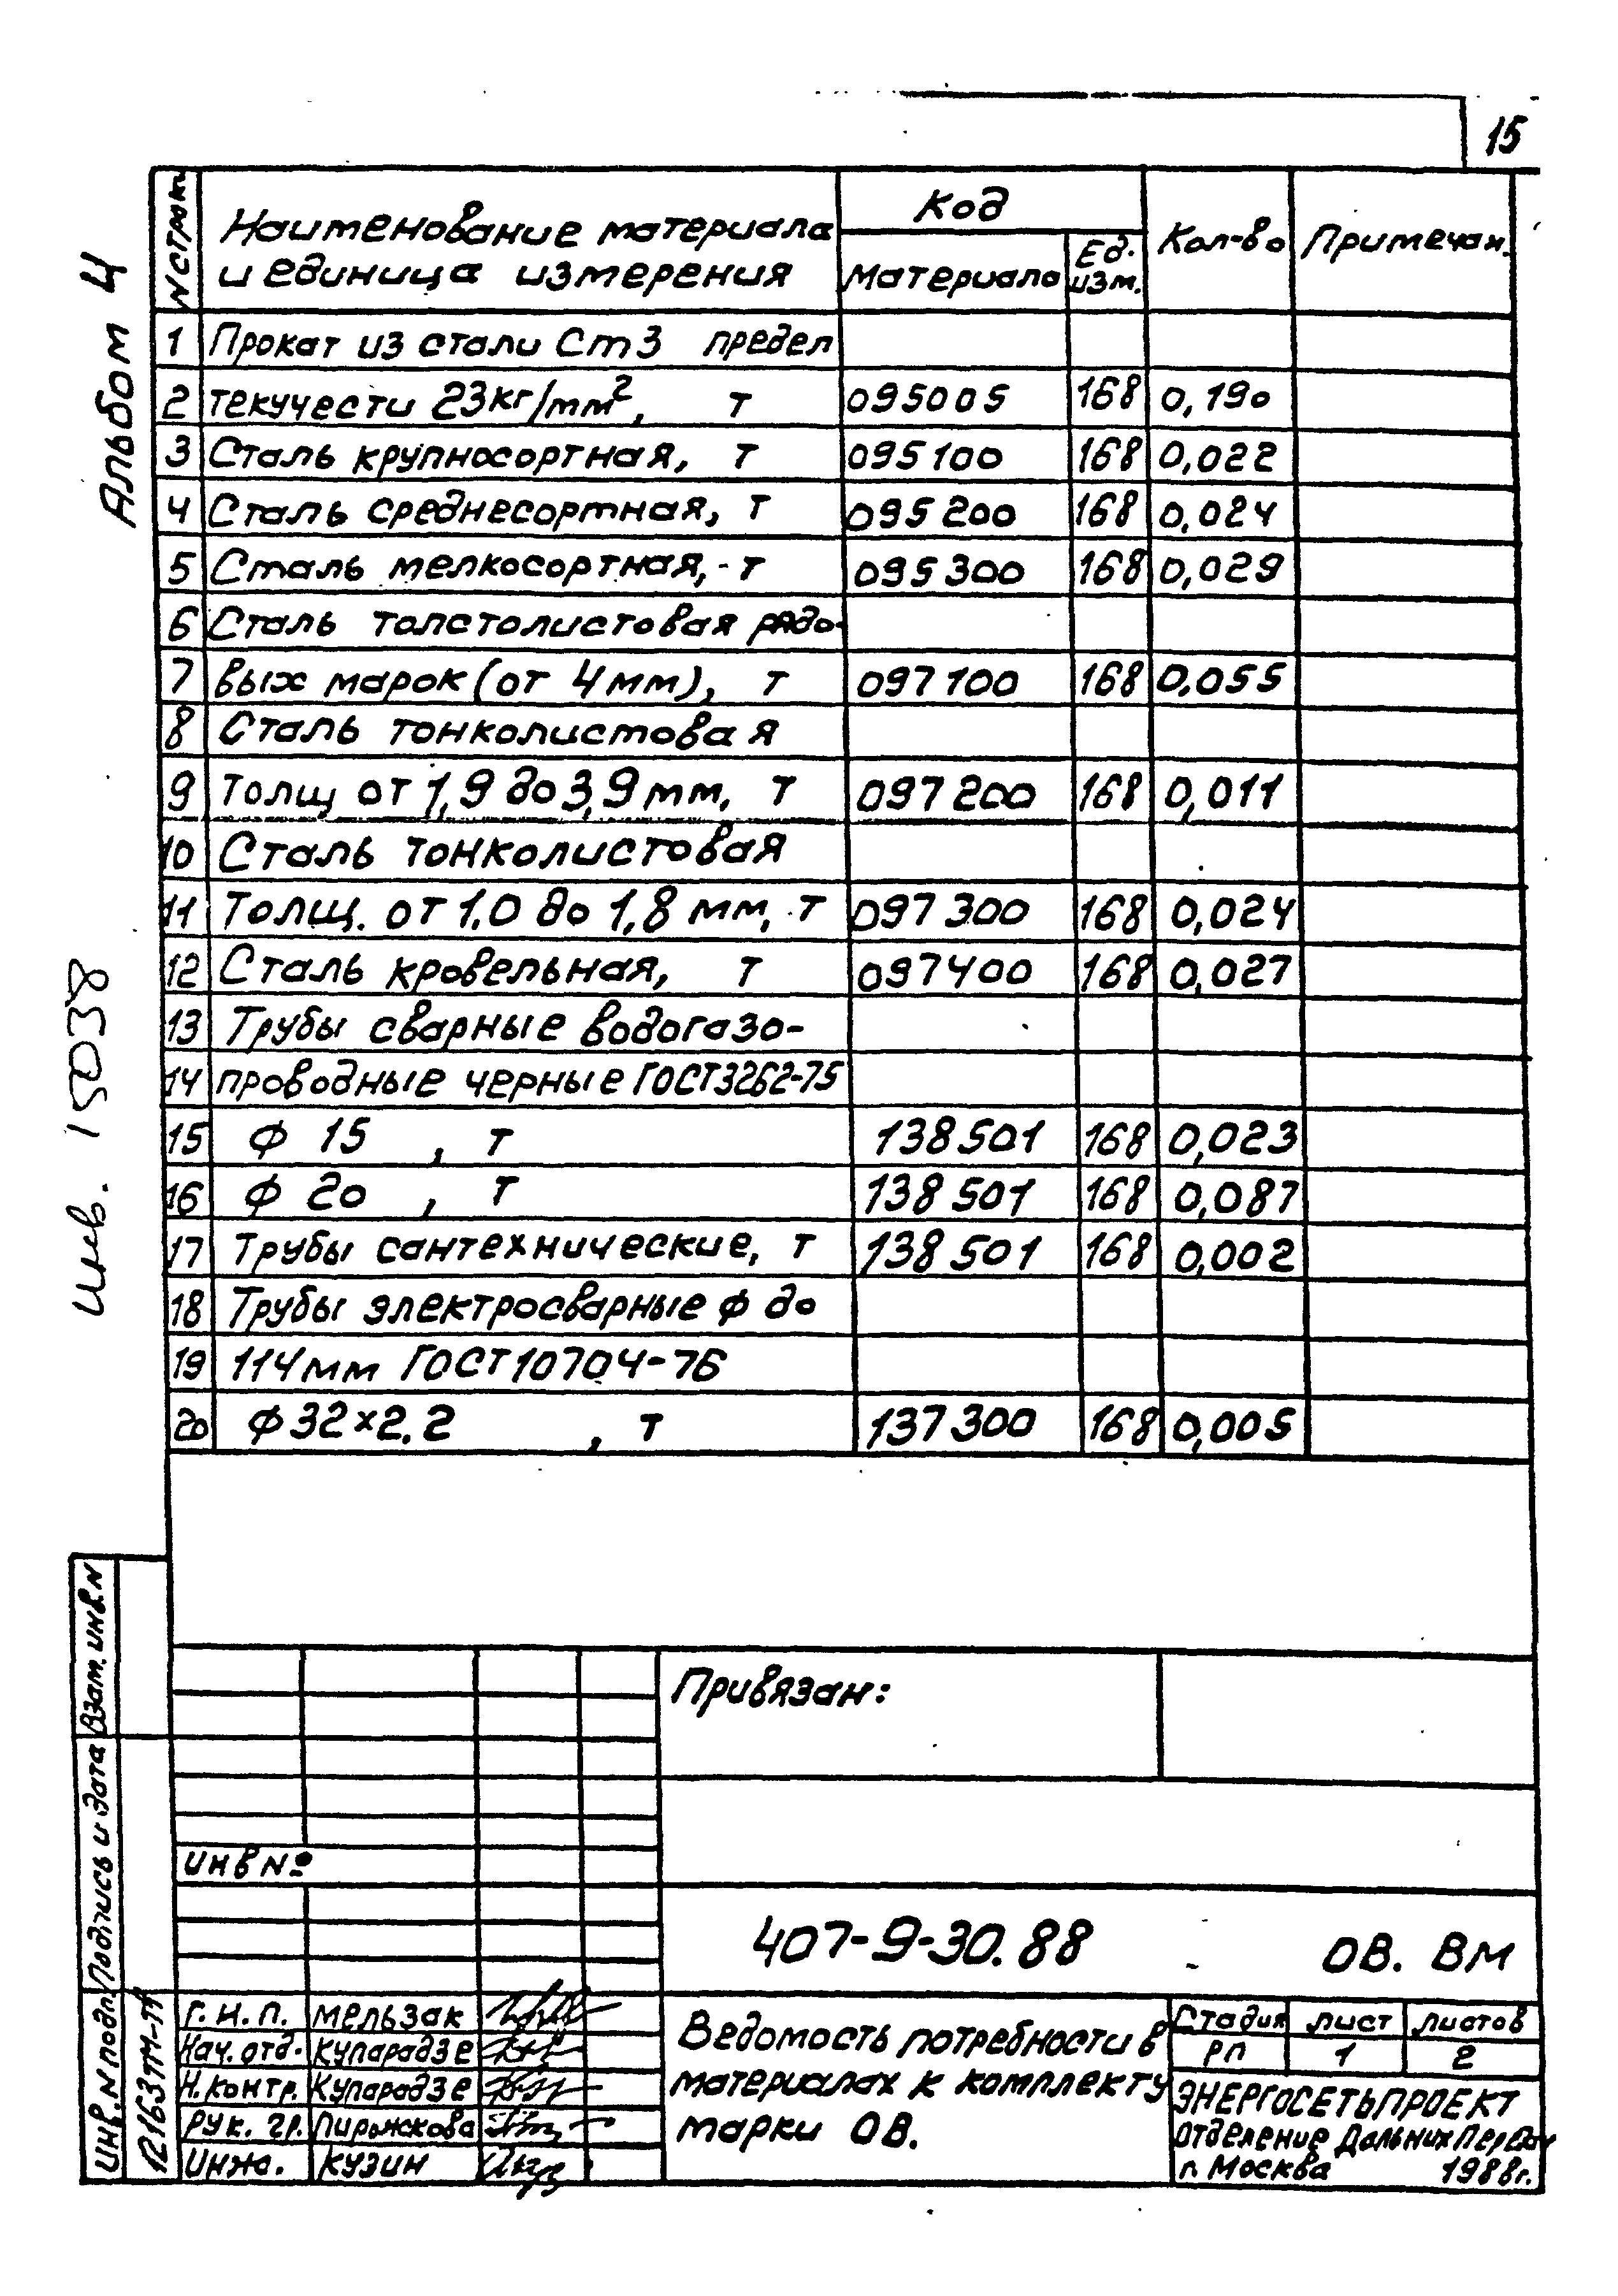 15
Альбом 4
Инв. 15038
N строки | Наименование материала и единица измерения | Код | Кол-во | Примечан.
Материала | Ед. изм.
1 Прокат из стали Ст3 предел
2 текучести 23кг/mm², т 095005 168 0,190
3 Сталь крупносортная, т 095100 168 0,022
4 Сталь среднесортная, т 095200 168 0,024
5 Сталь мелкосортная, т 095300 168 0,029
6 Сталь толстолистовая рядо-
7 вых марок (от 4мм), т 097100 168 0,055
8 Сталь тонколистовая
9 толщ от 1,9 до 3,9 мм, т 097200 168 0,011
10 Сталь тонколистовая
11 Толщ. от 1,0 до 1,8 мм, т 097300 168 0,024
12 Сталь кровельная, т 097400 168 0,027
13 Трубы сварные водогазо-
14 проводные черные ГОСТ3262-75
15 ф 15 , т 138501 168 0,023
16 ф 20 , т 138501 168 0,087
17 Трубы сантехнические, т 138501 168 0,002
18 Трубы электросварные ф до
19 114мм ГОСТ10704-76
20 ф32×2.2 , т 137300 168 0,005
Взам. инв. N
Подпись и дата
Инв. N подл.
12163тм-т
Привязан:
инв №
407-9-30.88 ОВ. ВМ
Г. И. П. Мельзак
Нач. отд. Купарадзе
Н. контр. Купарадзе
Рук. гр. Пирожкова
Инж. Кузин
Ведомость потребности в
материалах к комплекту
марки ОВ.
Стадия лист листов
РП 1 2
ЭНЕРГОСЕТЬПРОЕКТ
Отделение Дальних Передач
г. Москва 1988г.